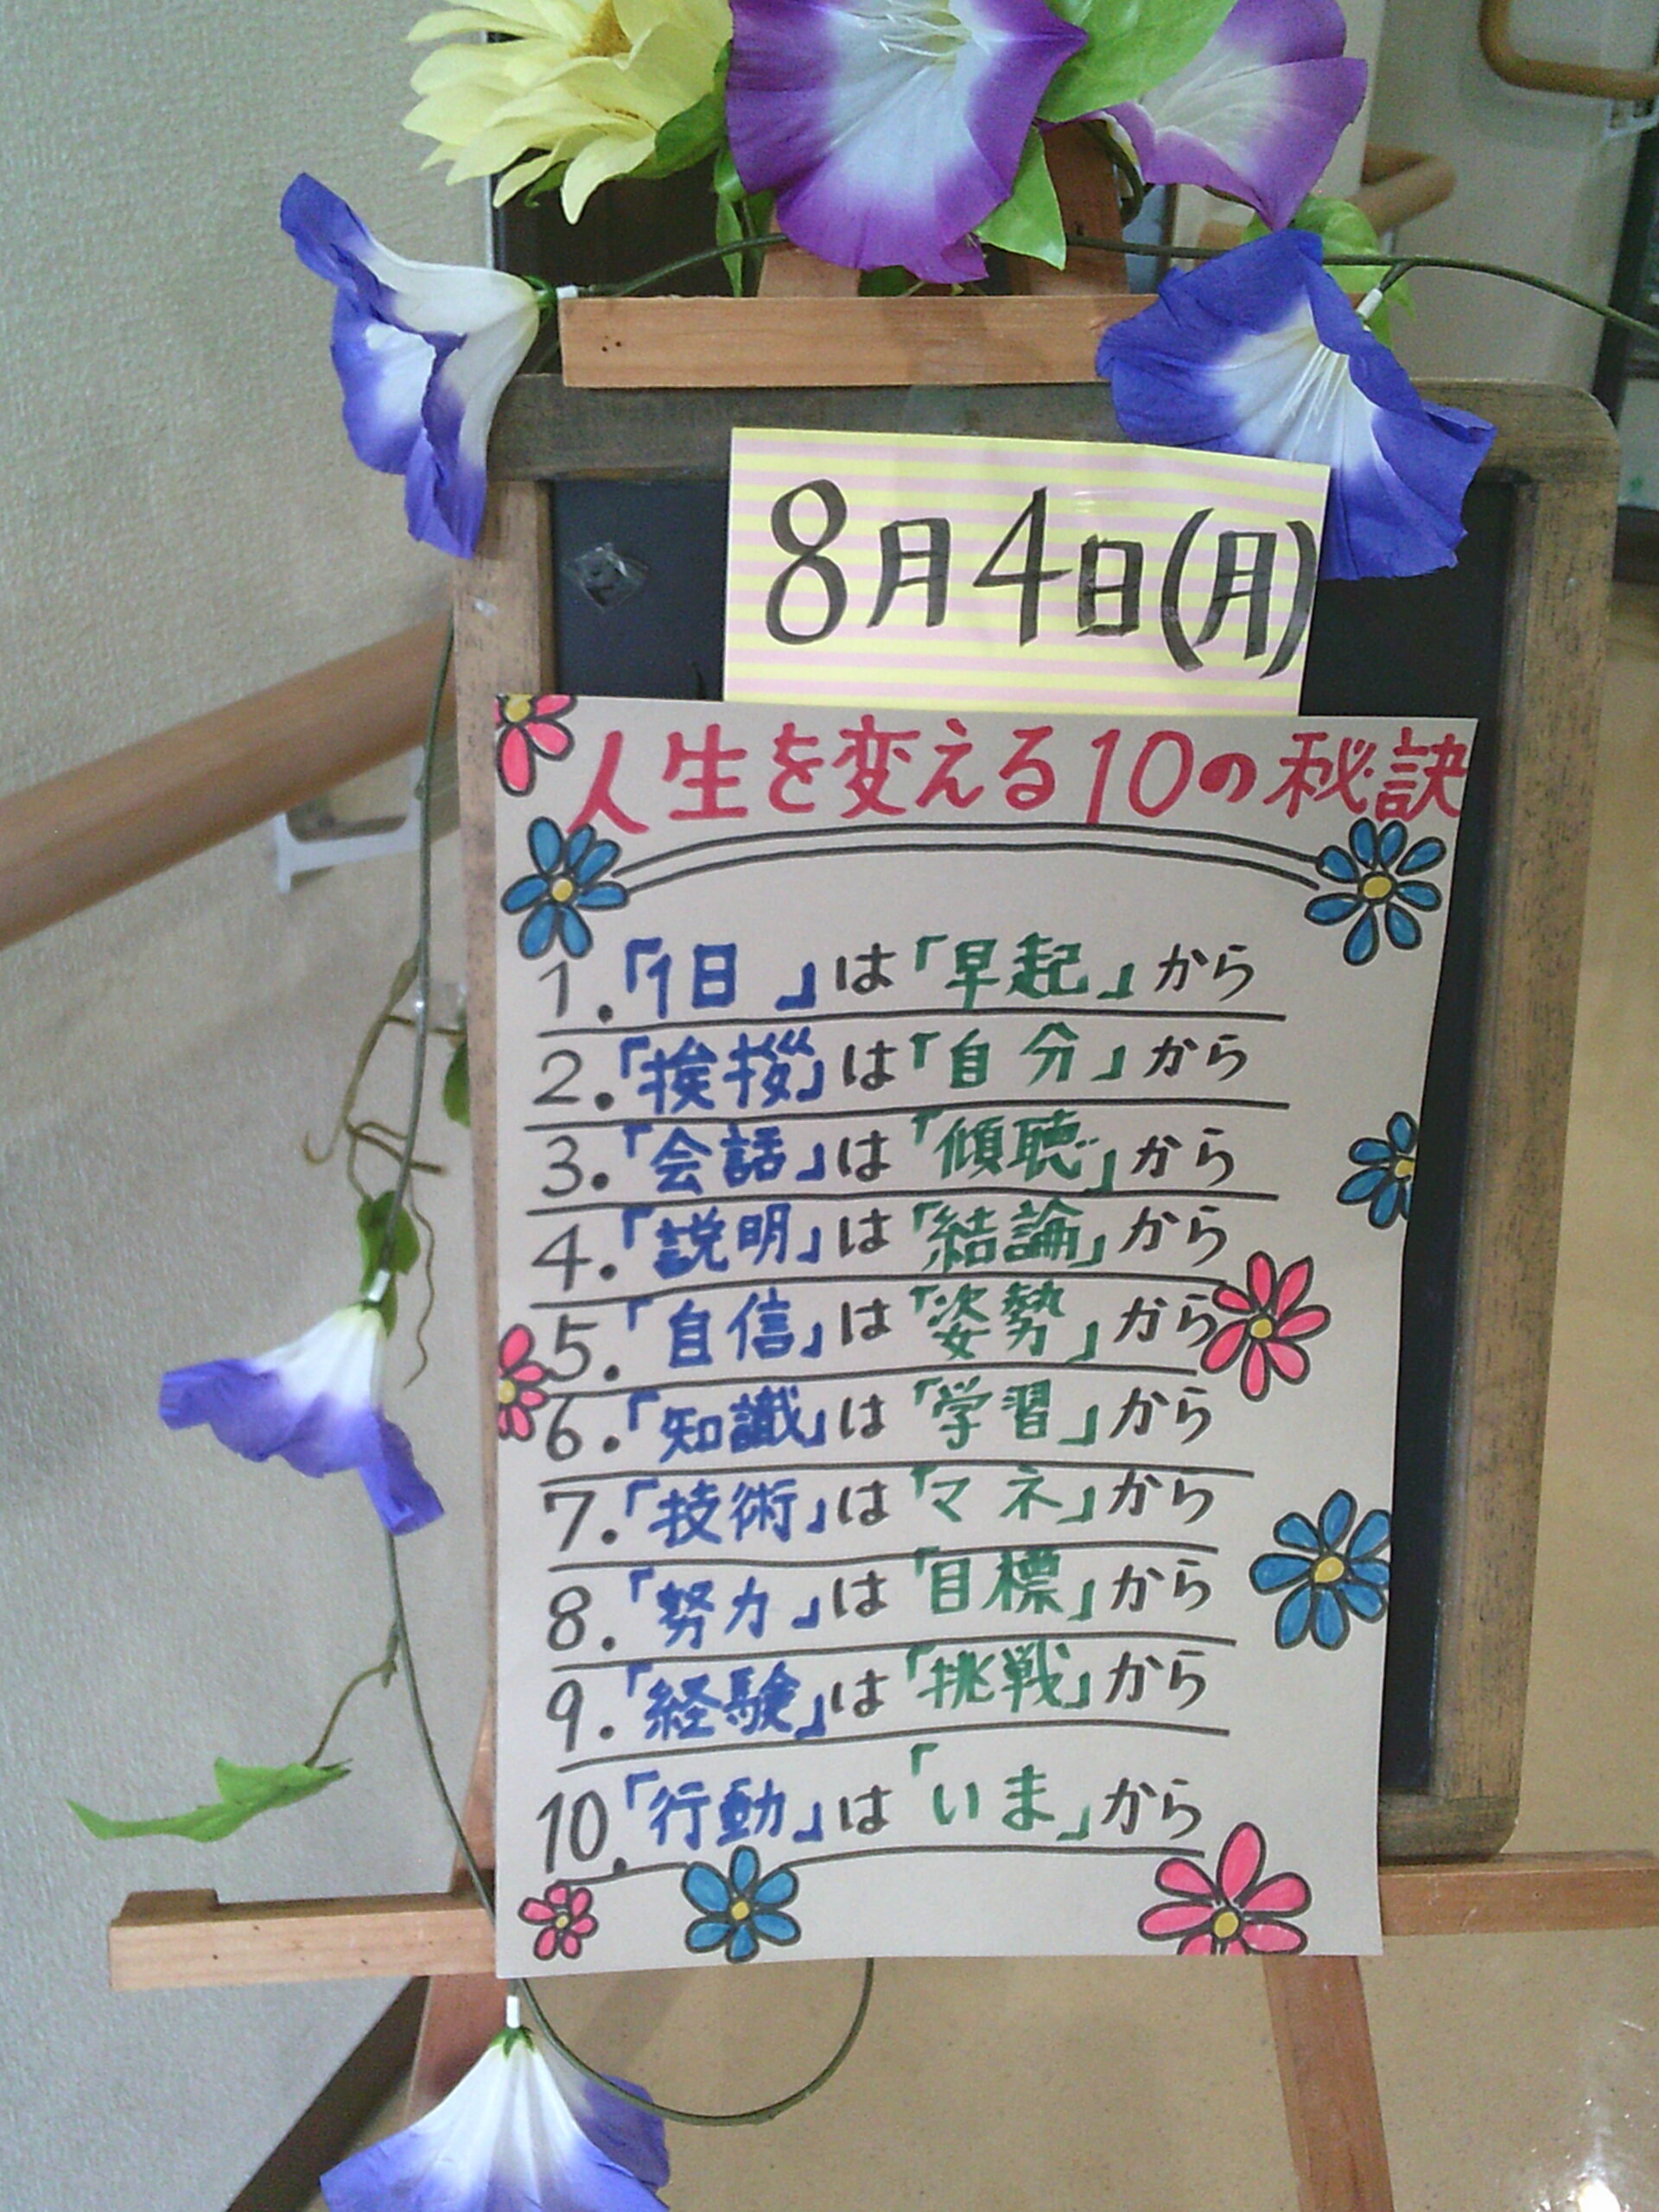 8月4日(月)
人生を変える10の秘訣
1.「1日」は「早起」から
2.「挨拶」は「自分」から
3.「会話」は「傾聴」から
4.「説明」は「結論」から
5.「自信」は「姿勢」から
6.「知識」は「学習」から
7.「技術」は「マネ」から
8.「努力」は「目標」から
9.「経験」は「挑戦」から
10.「行動」は「いま」から